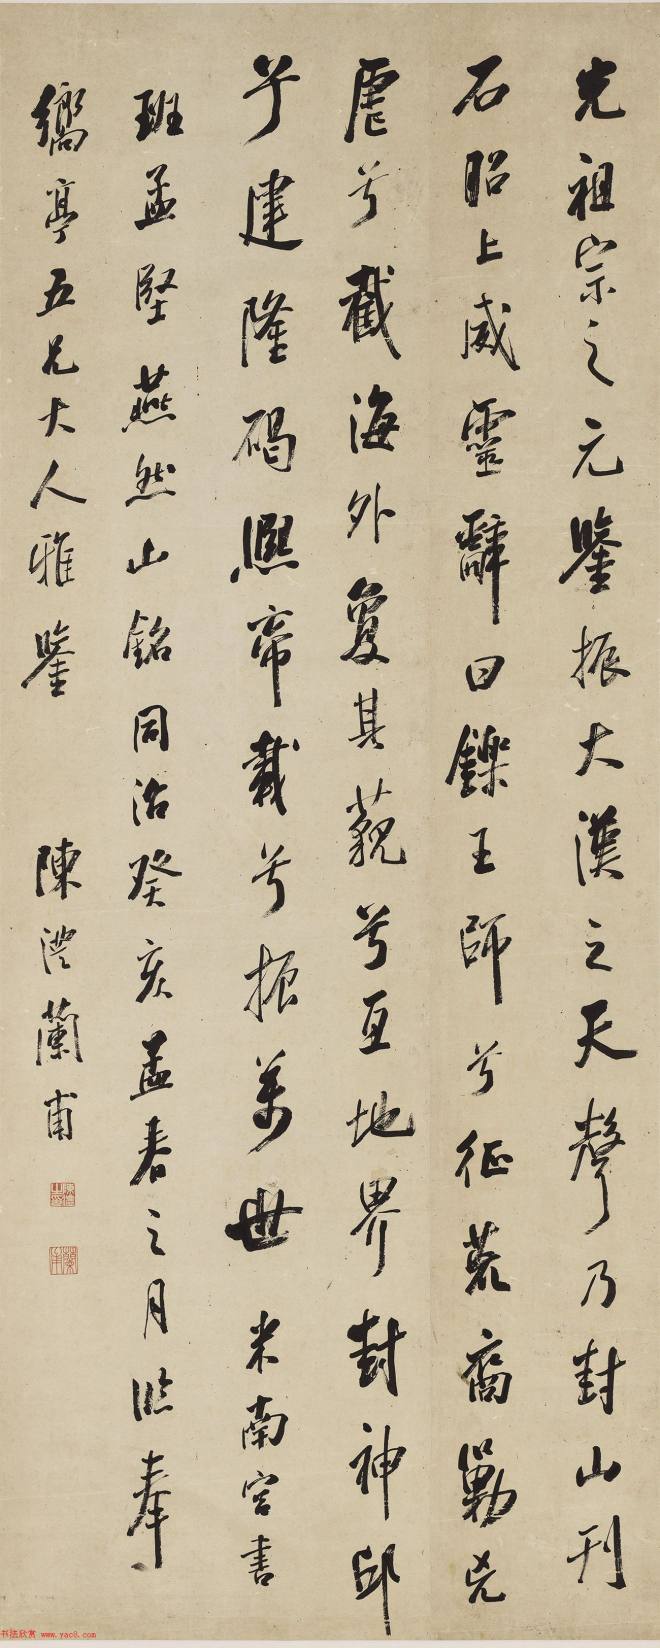 光祖宗之元鑒振大漢之天聲乃封山刊
石昭上威靈辭曰鑠王師兮征荒裔勦凶
虐兮截海外夐其藐兮亙地界封神邱
兮建隆碣熙帝載兮振萬世 米南宮書
班孟堅燕然山銘同治癸亥孟春之月臨奉
鄉亭五兄大人雅鑒 陳澧蘭甫
陳澧之印
蘭甫
书法欣赏 www.yac8.com